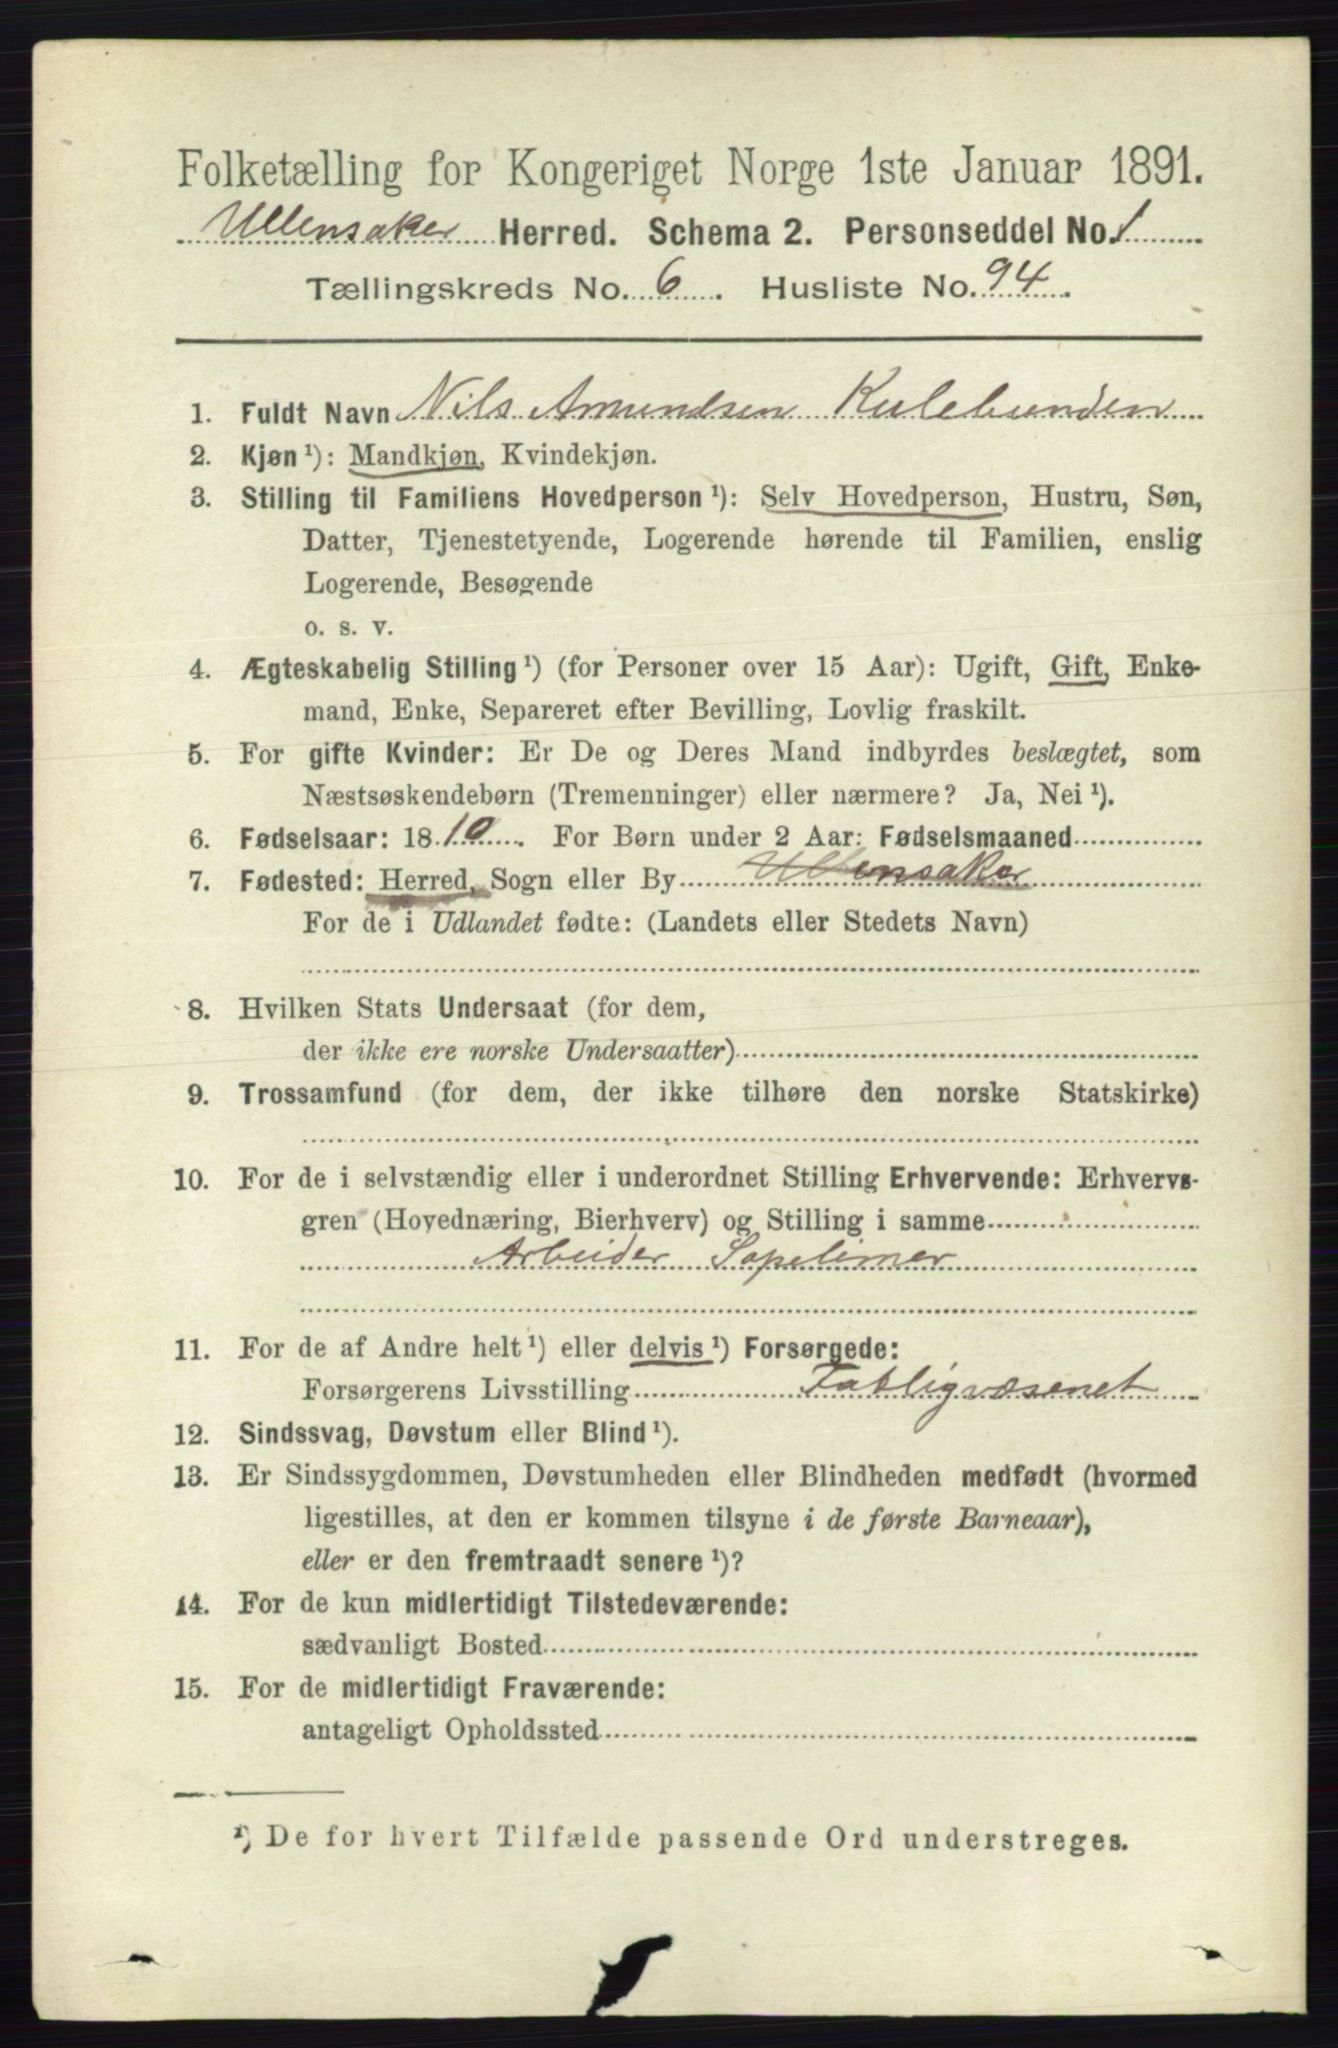 Folketælling for Kongeriget Norge 1ste Januar 1891.
Ullensaker Herred. Schema 2. Personseddel No. 1
Tællingskreds No. 6. Husliste No. 94.
1. Fuldt Navn Nils Amundsen Kulebunden
2. Kjøn¹): Mandkjøn, Kvindekjøn.
3. Stilling til Familiens Hovedperson¹): Selv Hovedperson, Hustru, Søn,
Datter, Tjenestetyende, Logerende hørende til Familien, enslig
Logerende, Besøgende
o. s. v.
4. Ægteskabelig Stilling¹) (for Personer over 15 Aar): Ugift, Gift, Enke-
mand, Enke, Separeret efter Bevilling, Lovlig fraskilt.
5. For gifte Kvinder: Er De og Deres Mand indbyrdes beslægtet, som
Næstsøskendebørn (Tremenninger) eller nærmere? Ja, Nei¹).
6. Fødselsaar: 1810. For Børn under 2 Aar: Fødselsmaaned
7. Fødested: Herred, Sogn eller By Ullensaker
For de i Udlandet fødte: (Landets eller Stedets Navn)
8. Hvilken Stats Undersaat (for dem,
der ikke ere norske Undersaatter)
9. Trossamfund (for dem, der ikke tilhøre den norske Statskirke)
10. For de i selvstændig eller i underordnet Stilling Erhvervende: Erhvervs-
gren (Hovednæring, Bierhverv) og Stilling i samme
Arbeider
11. For de af Andre helt¹) eller delvis¹) Forsørgede:
Forsørgerens Livsstilling Fattigvæsenet
12. Sindssvag, Døvstum eller Blind¹).
13. Er Sindssygdommen, Døvstumheden eller Blindheden medfødt (hvormed
ligestilles, at den er kommen tilsyne i de første Barneaar),
eller er den fremtraadt senere¹)?
14. For de kun midlertidigt Tilstedeværende:
sædvanligt Bosted
15. For de midlertidigt Fraværende:
antageligt Opholdssted
¹) De for hvert Tilfælde passende Ord understreges.